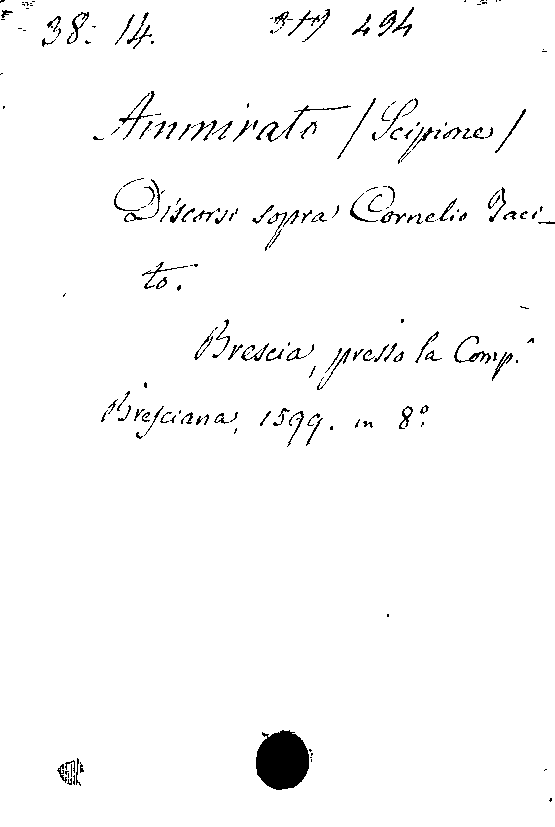 38: 14. 319 494
Ammirato / Scipione /
Discorsi sopra Cornelio Taci_
to.
Brescia, presso la Comp.ª
Bresciana, 1599. in 8º.